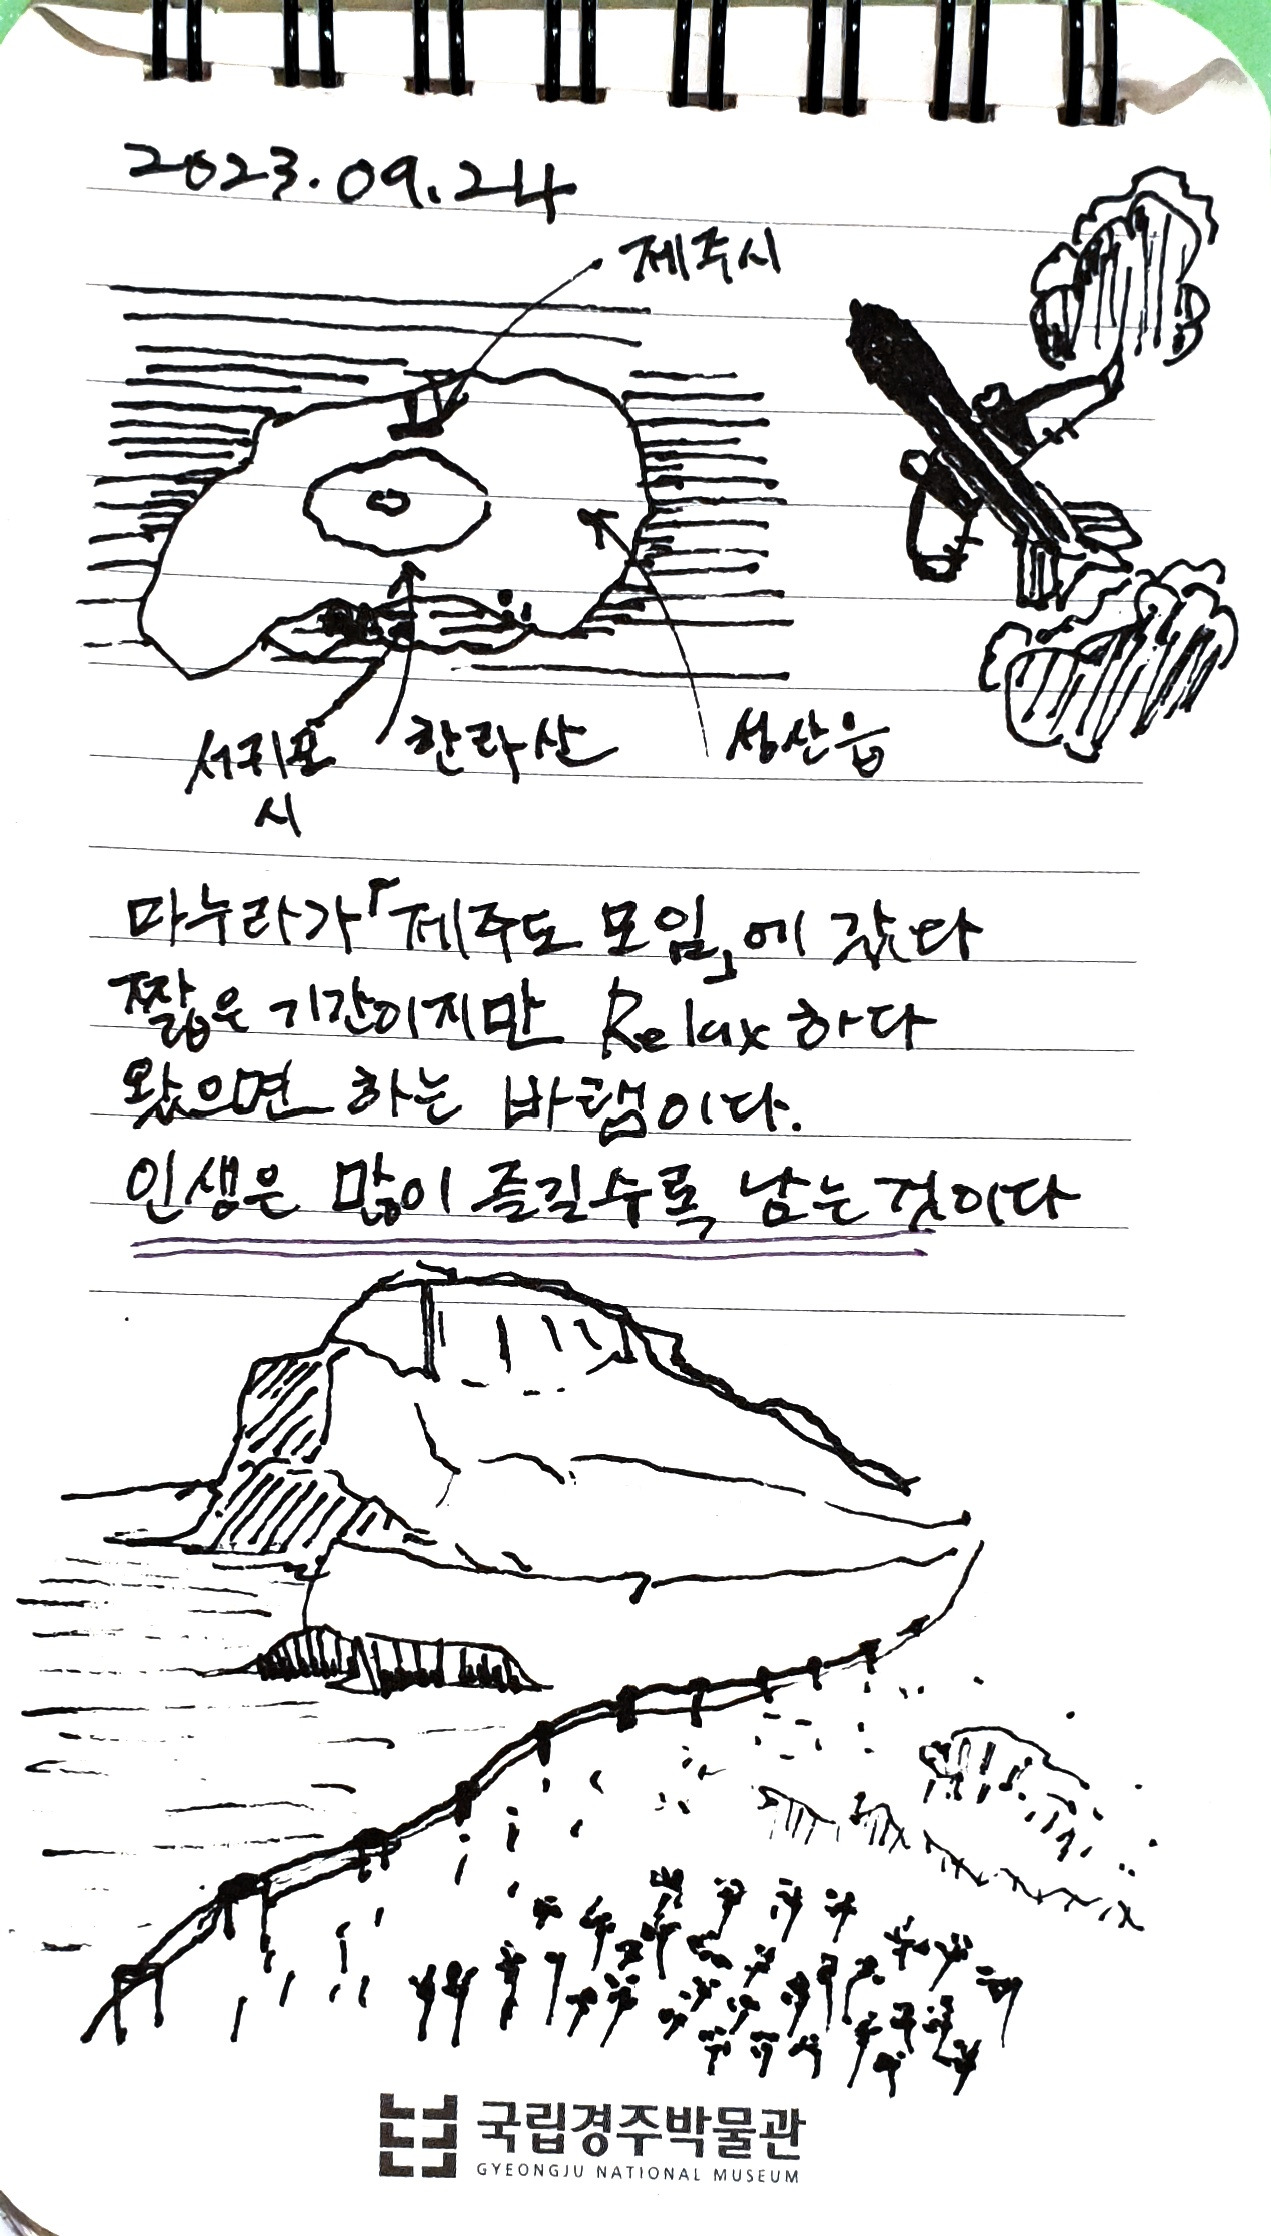 2023.09.24
제주시
서귀포
시
한라산
성산읍
마누라가「제주도 모임」에 갔다
짧은 기간이지만 Relax 하다
왔으면 하는 바램이다.
인생은 많이 즐길수록 남는 것이다
국립경주박물관
GYEONGJU NATIONAL MUSEUM